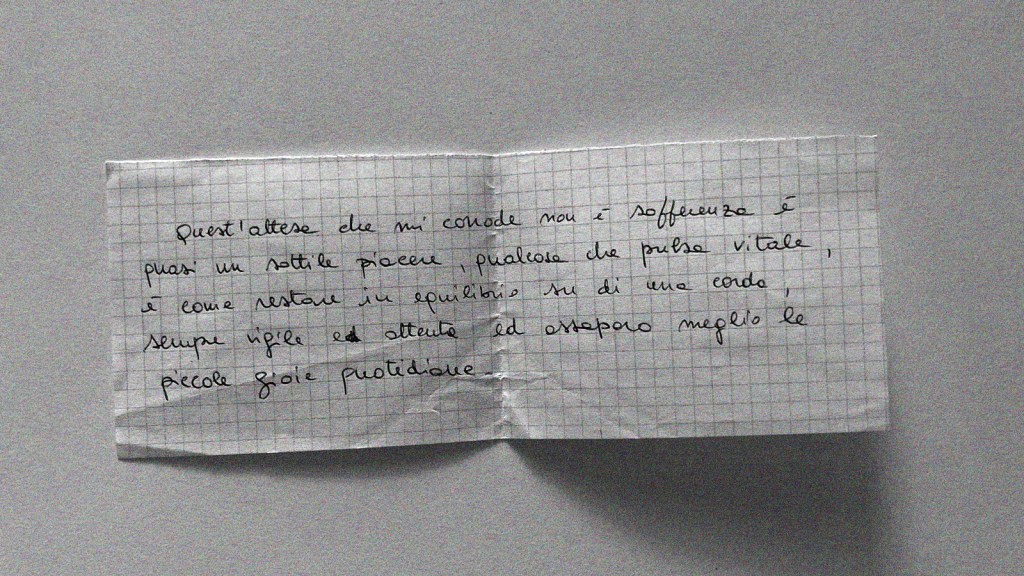 Quest'attesa che mi corrode non è sofferenza è
quasi un sottile piacere, qualcosa che pulsa vitale,
è come restare in equilibrio su di una corda,
sempre vigile ed attenta ed assaporo meglio le
piccole gioie quotidiane